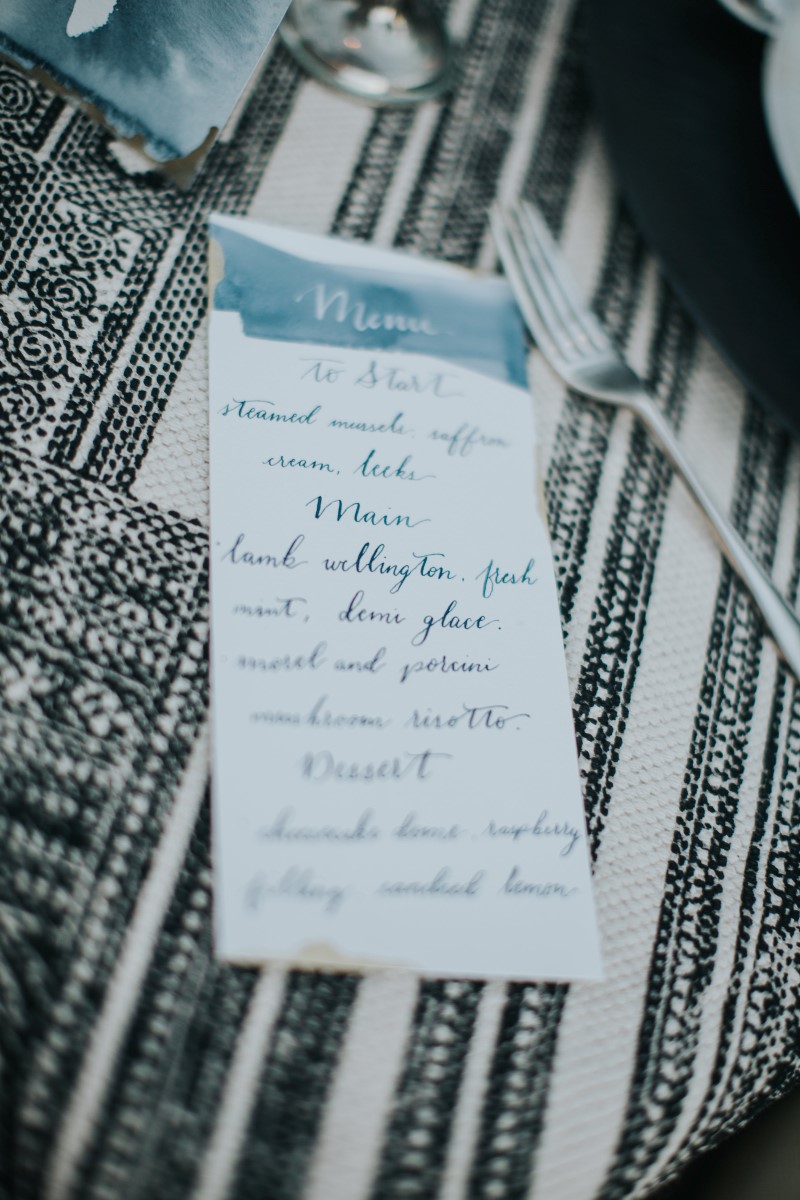 Menu
to Start
steamed mussels. saffron
cream, leeks
Main
lamb wellington. fresh
mint, demi glace.
morel and porcini
mushroom risotto.
Dessert
cheesecake bome. raspberry
filling candied lemon